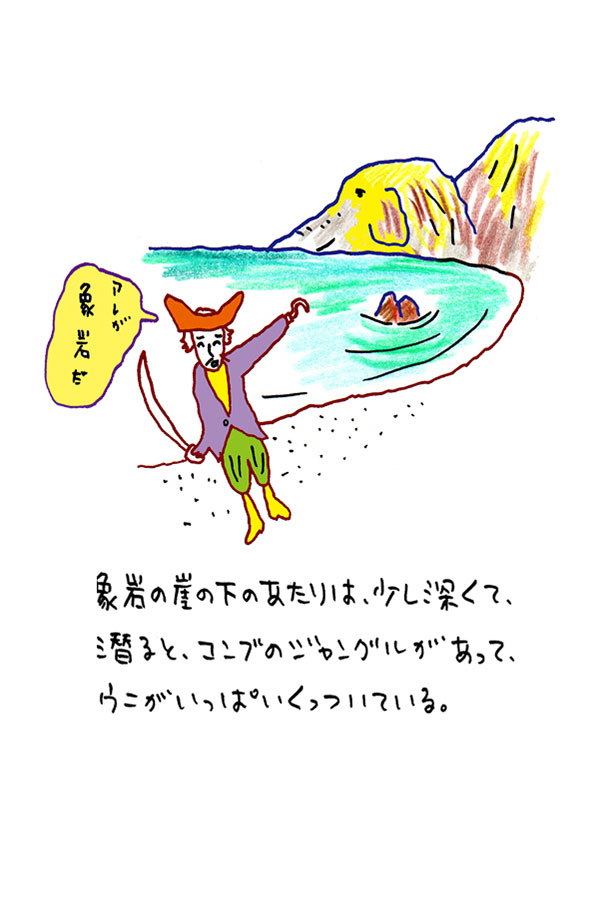 アレが
象岩だ
象岩の崖の下のあたりは、少し深くて、
潜ると、コンブのジャングルがあって、
ウニがいっぱいくっついている。